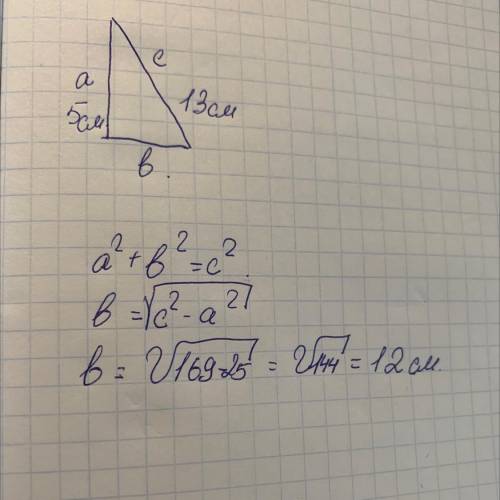 a
c
5см
13см
в.
a² + в² = c².
в = √c² - a²
в = √169-25 = √144 = 12 см.